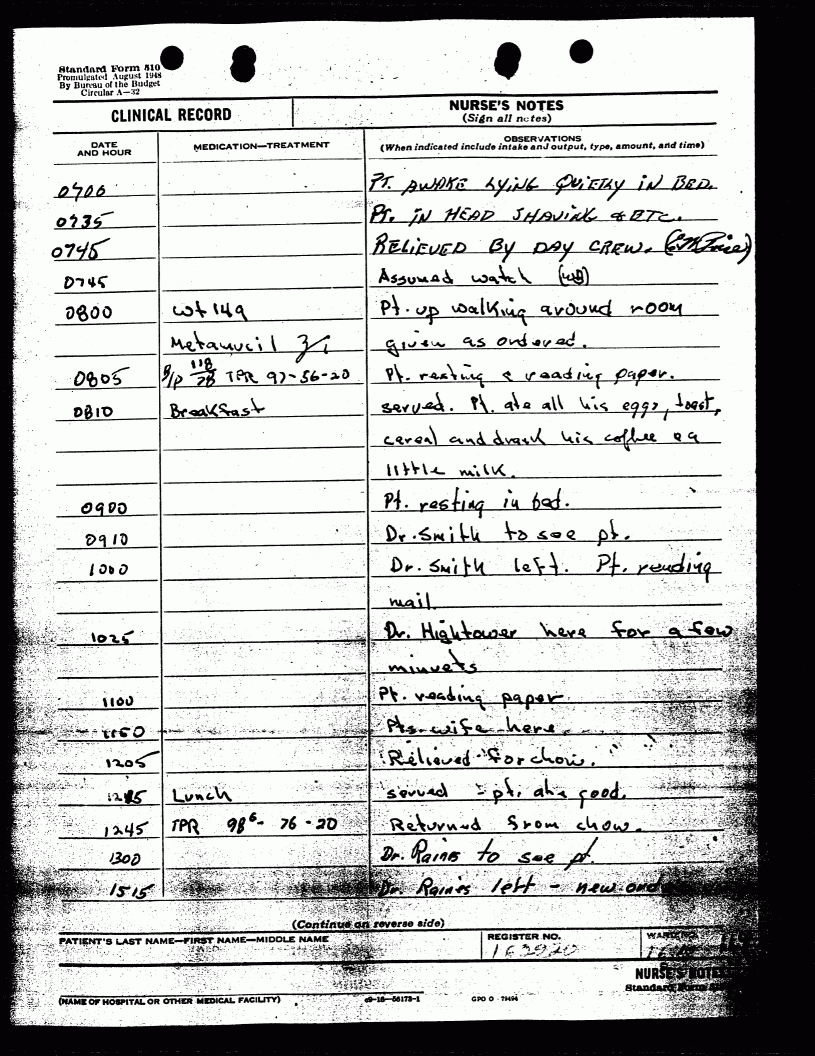 Standard Form 510
Promulgated August 1948
By Bureau of the Budget
Circular A—32
CLINICAL RECORD
NURSE'S NOTES
(Sign all notes)
DATE AND HOUR
MEDICATION—TREATMENT
OBSERVATIONS
(When indicated include intake and output, type, amount, and time)
0700 PT. AWAKE LYING QUIETLY IN BED.
0735 PT. IN HEAD SHAVING & ETC.
0745 RELIEVED BY DAY CREW.
0745 Assumed watch
0800 wt 149 Pt. up walking around room
Metamucil given as ordered.
0805 B/P 118/78 TPR 97-56-20 Pt. resting & reading paper.
0810 Breakfast served. Pt. ate all his eggs, toast,
cereal and drank his coffee & a
little milk.
0900 Pt. resting in bed.
0910 Dr. Smith to see pt.
1000 Dr. Smith left. Pt. reading
mail
1025 Dr. Hightower here for a few
minuets
1100 Pt. reading paper
1150 Pts wife here.
1205 Relieved for chow.
Lunch served - pt. ate good.
1245 TPR 98⁶- 76 - 20 Returned from chow.
1300 Dr. Raines to see pt.
1515 Dr. Raines left - new
(Continue on reverse side)
PATIENT'S LAST NAME—FIRST NAME—MIDDLE NAME
REGISTER NO.
163920
WARD NO.
NURSE'S NOTES
Standard Form
(NAME OF HOSPITAL OR OTHER MEDICAL FACILITY)
c9—16—56173-1
GPO O - 79494